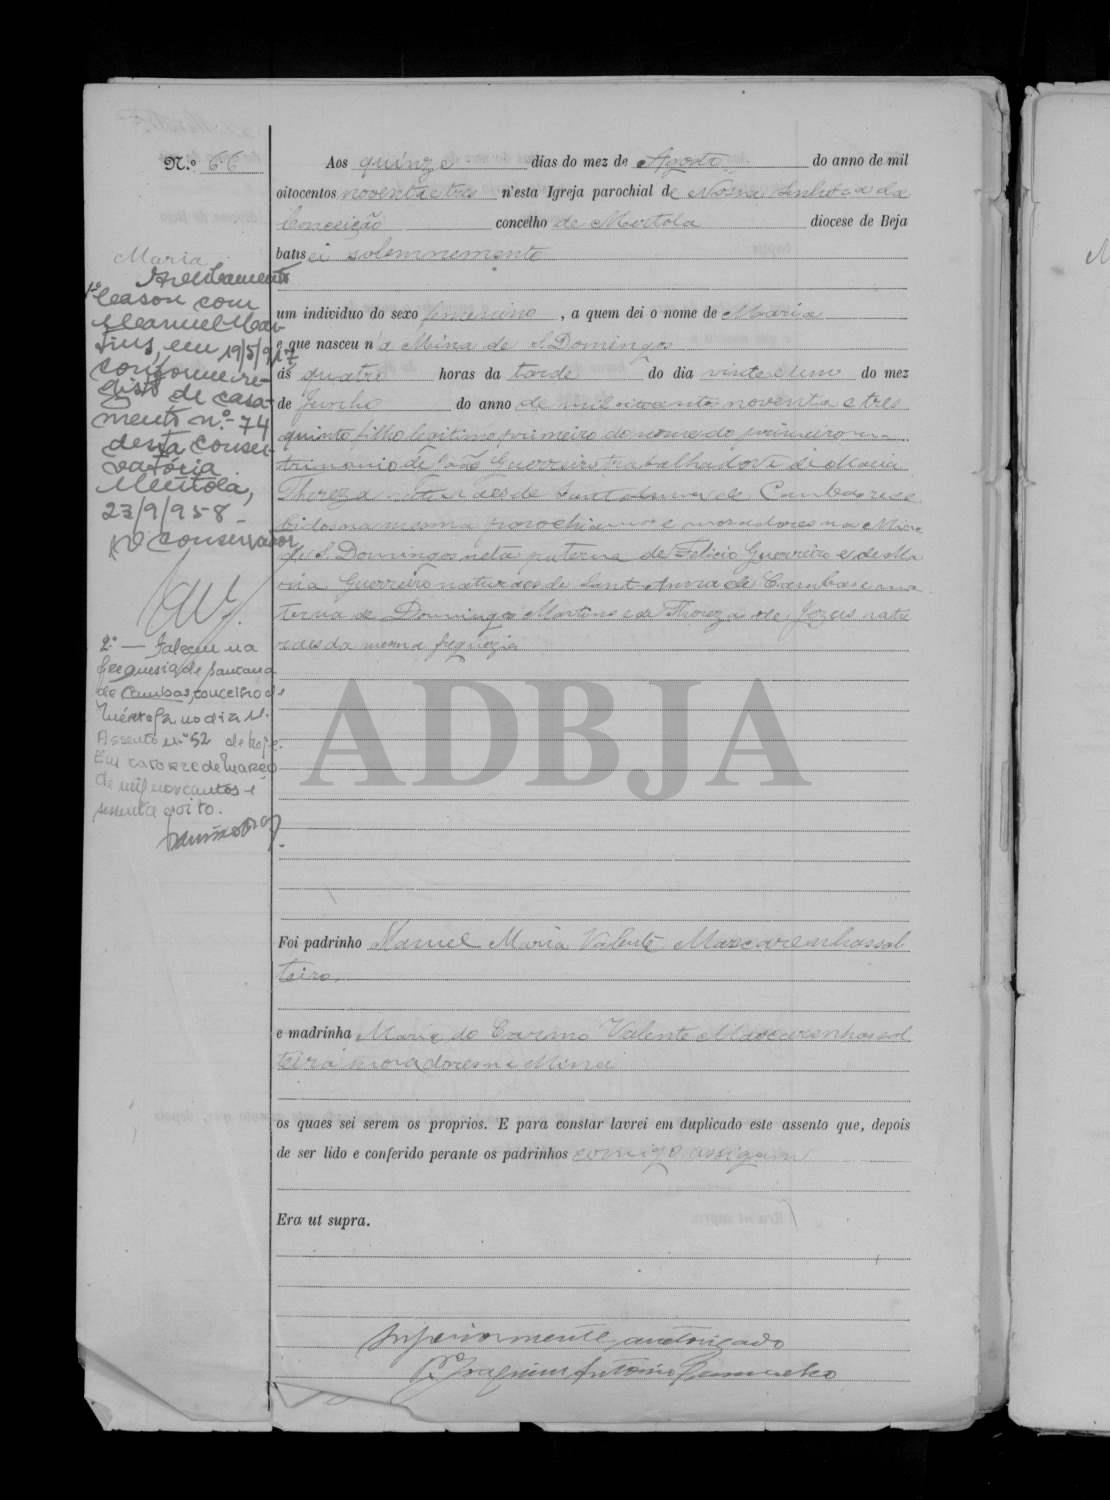 N.º 66
Maria
Averbamento
1º Casou com
Manuel Mar-
tins, em 19/5/917
conforme re-
gisto de casa-
mento n.º 74
desta conser-
vatória.
Mértola,
23/9/958-
O conservador
2º — Faleceu na
freguesia de Santana
de Cambas, concelho de
Mértola no dia
Assento nº 52 de hoje.
Em catorze de Março
de mil novecentos e
sessenta e oito.
Aos quinze dias do mez de Agosto do anno de mil
oitocentos noventa e tres n'esta Igreja parochial de Nossa Senhora da
Conceição concelho de Mertola diocese de Beja
batisei solemnemente
um individuo do sexo femenino, a quem dei o nome de Maria
e que nasceu na Mina de S. Domingos
ás quatro horas da tarde do dia vinte e um do mez
de Junho do anno de mil oitocentos noventa e tres
quinto filho legitimo primeiro do nome do primeiro ma-
trimonio de João Guerreiro trabalhador e de Maria
Thereza naturaes de Sant'Anna de Cambas rece-
bidos na mesma parochianos e moradores na Mina
de S. Domingos neta paterna de Felicio Guerreiro e de Ma
ria Guerreiro naturaes de Sant'Anna de Cambas e ma
terna de Domingos Martins e de Thereza de Jezus natu
raes da mesma freguezia
ADBJA
Foi padrinho Manuel Maria Valente Mascarenhas sol
teiro,
e madrinha Maria do Carmo Valente Mascarenhas sol
teira moradores na Mina
os quaes sei serem os proprios. E para constar lavrei em duplicado este assento que, depois
de ser lido e conferido perante os padrinhos comigo assignam
Era ut supra.
Superiormente auctorisado
P.e Joaquim Antonio